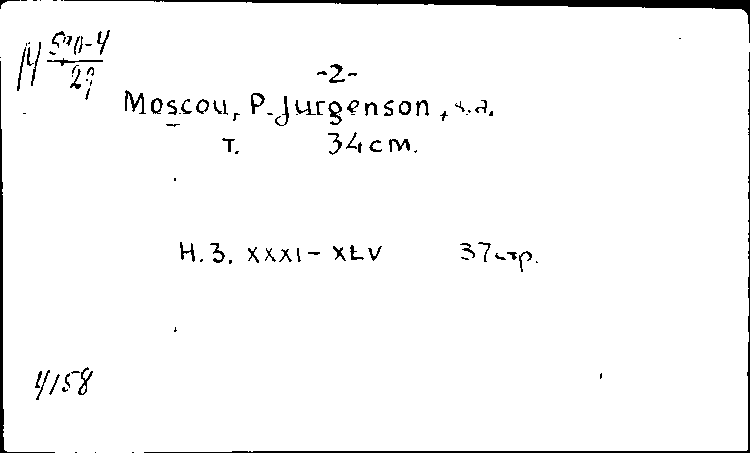 М 590-4
29
-2-
Moscou, P. Jurgenson, s.a.
т. 34 cm.
H. 3. XXXI - XLV 37 стр.
4158